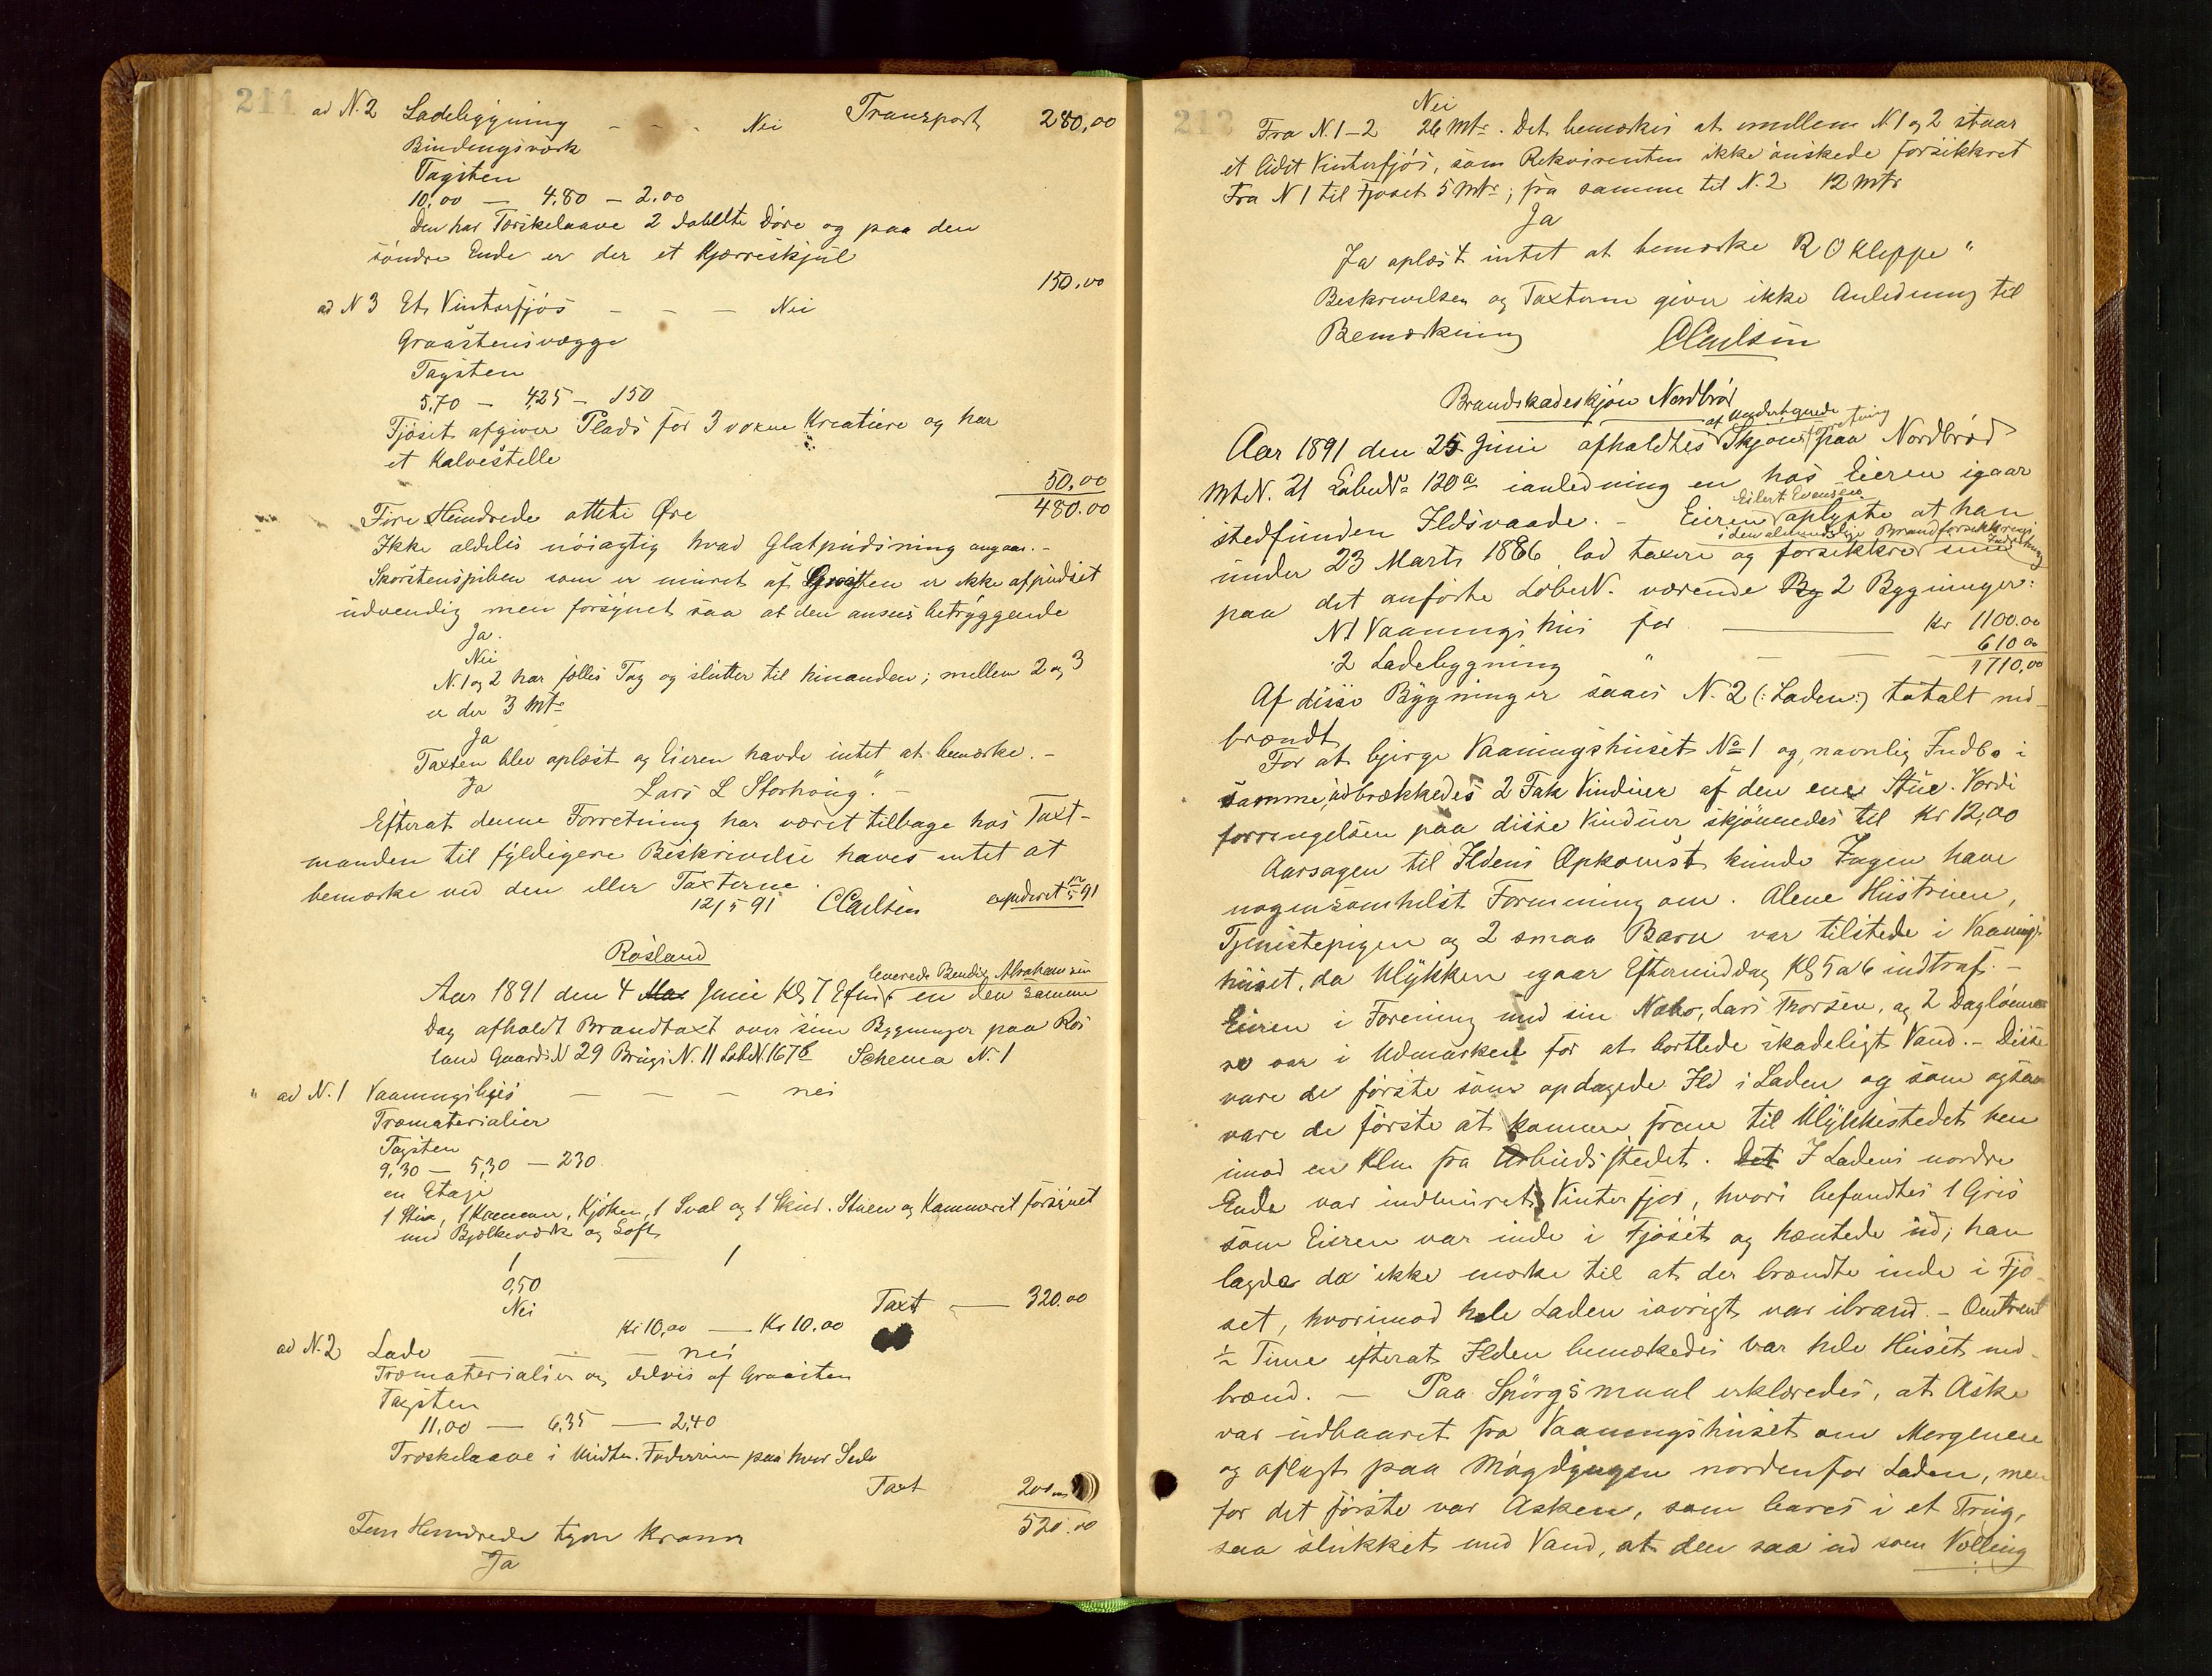 211
ad N. 2 Ladebygning - - - Nei Transport 280,00
Bindingsværk
Tagsten
10,00 — 4.80 — 2.00
Den har Tærskelaave 2 dobelte Döre og paa den
söndre Ende er der et Kjærreskjul
150,00
ad N 3 Et Vinterfjös - - - Nei
Graastensvægge
Tagsten
5,70 — 4,25 — 150
Fjöset afgiver Plads for 3 voxne Kreatüre og har
et Kalvestelle
50,00
Fire Hundrede ottete Øre 480.00
Ikke aldeles nöiagtig hvad Glatpudsning angaar. -
Skorstenspiben som er muret af Graasten er ikke afpudset
udvendig men forsynet saa at den ansees betryggende
Ja.
Nei
N. 1 og 2 har fælles Tag og slutter til hinanden; mellem 2 og 3
er der 3 Mtr
Ja
Taxten blev oplæst og Eieren havde intet at bemærke. -
Ja Lars L Storhoug". -
Efterat denne Forretning har været tilbage hos Taxt-
manden til fyldigere Beskrivelse haves intet at
bemærke ved den eller Taxterne.
12/5 91 CCarlsen expederet 12/5 91
Rösland
leverede Bendix Abrahamsen
Aar 1891 den 4 Mai Juni Kl 7 Efm en den samme
Dag afholdt Brandtaxt over sine Bygninger paa Rös
land Gaards N 29 Brugs N. 11 LöbN. 167b Schema N. 1
" ad N. 1 Vaaningshus - - - nei
Træmaterialier
Tagsten
9,30 — 5,30 — 230
en Etage
1 Stue, 1 Kammer, Kjöken, 1 Sval og 1 Skud. Stuen og Kammeret forsynet
med Bjelkeværk og Loft
1 — 1
0,50
Nei Taxt — 320.00
Kr 10,00 — Kr 10.00
ad N. 2 Lade - - - nei
Træmaterialier og delvis af Graasten
Tagsten
11,00 — 6,35 — 2,40
Træskelaave i Midten. Foderrum paa hver Side
Taxt 200
Fem Hundrede tyve Kroner 520.00
Ja
212
Nei
Fra N. 1-2 26 Mtr. Det bemærkes at mellem N 1 og 2 staar
et lidet Vinterfjös, som Rekvirenten ikke önskede forsikkret
Fra N 1 til Fjöset 5 Mtr; fra samme til N. 2 12 Mtr
Ja
Ja oplæst intet at bemærke R O Kleppe "
Beskrivelsen og Taxterne giver ikke Anledning til
Bemærkning CCarlsen
Brandskadeskjön Nordbröd
af Undertegnede
Aar 1891 den 25 Juni afholdtes Skjönsforretning paa Nordbröd
MtN. 21 LöbeN. 120a ianledning en hos Eieren igaar
stedfunden Ildsvaade. - Eieren Eilert Evensen oplyste at han
i den almindelige Brandforsikkrings Indretning
under 23 Marts 1886 lod taxere og forsikkre sine
paa det anförte LöbeN. værende By 2 Bygninger:
N 1 Vaaningshus for — Kr 1100.00
" 2 Ladebygning " — 610 00
1710,00
Af disse Bygninger saaes N. 2 (: Laden:) totalt ned-
brændt
For at bjerge Vaaningshuset No 1 og navnlig Indbo i
samme, udbrækkedes 2 Fak Vinduer af den ene Stue. Værdi
forringelsen paa disse Vinduer skjönnedes til Kr 12,00
Aarsagen til Ildens Opkomst kunde Ingen have
nogensomhelst Formening om. Alene Hustruen,
Tjenistepigen og 2 smaa Barn var tilstede i Vaanings
huset, da Ulykken igaar Eftermiddag Kl 5 a 6 indtraf. -
Eieren i Forening med sin Nabo, Lars Thorsen, og 2 Daglönne
re var i Udmarken for at bortlede skadeligt Vand. - Disse
vare de förste som opdagede Ild i Laden og som ogsaa
vare de förste at komme frem til Ulykkestedet hen
imod en Klm fra Arbeidsstedet. Det I Ladens nordre
Ende var indmuret Vinterfjös, hvori befandtes 1 Gris
som Eieren var inde i Fjöset og hentede ud; han
lagde da ikke mærke til at der brændte inde i Fjö-
set, hvorimod hele Laden iövrigt var ibrand. - Omtrent
½ Time efterat Ilden bemærkedes var hele Huset ned-
brænd. — Paa Spörgsmaal erklæredes, at Aske
var udbaaret fra Vaaningshuset om Morgenen
og oplagt paa Mögdyngen nordenfor Laden, men
for det förste var Asken, som bares i et Trug,
saa slukket med Vand, at den saa ud som Velling